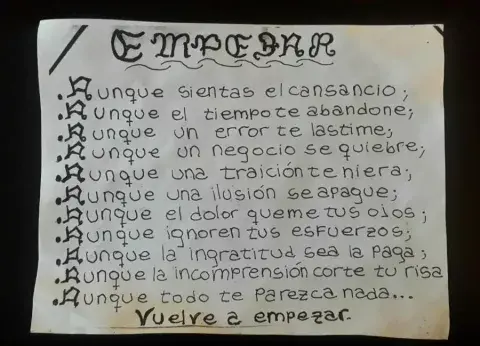 EMPEZAR
.Aunque sientas el cansancio;
.Aunque el tiempo te abandone;
.Aunque un error te lastime;
.Aunque un negocio se quiebre;
.Aunque una traición te hiera;
.Aunque una ilusión se apague;
.Aunque el dolor queme tus ojos;
.Aunque ignoren tus esfuerzos;
.Aunque la ingratitud sea la paga;
.Aunque la incomprensión corte tu risa
.Aunque todo te parezca nada...
Vuelve a empezar.